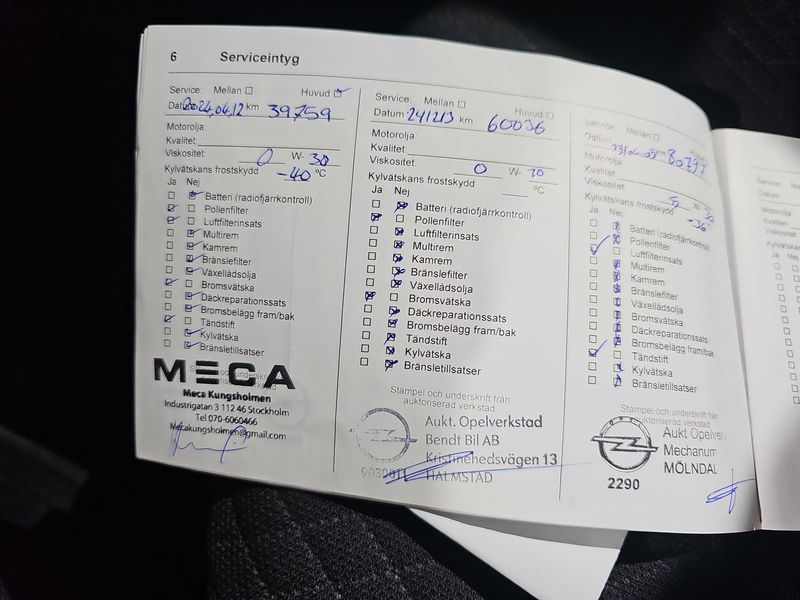 6 Serviceintyg
Service: Mellan Huvud
Datum 2024,04,12 km 39759
Motorolja:
Kvalitet:
Viskositet: 0 W- 30
Kylvätskans frostskydd -40 °C
Ja Nej
Batteri (radiofjärrkontroll)
Pollenfilter
Luftfilterinsats
Multirem
Kamrem
Bränslefilter
Växellådsolja
Bromsvätska
Däckreparationssats
Bromsbelägg fram/bak
Tändstift
Kylvätska
Bränsletillsatser
MECA
Meca Kungsholmen
Industrigatan 3 112 46 Stockholm
Tel 070-6060466
Mecakungsholmen@gmail.com
Service: Mellan Huvud
Datum 241213 km 60036
Motorolja:
Kvalitet:
Viskositet: 0 W-
Kylvätskans frostskydd °C
Ja Nej
Batteri (radiofjärrkontroll)
Pollenfilter
Luftfilterinsats
Multirem
Kamrem
Bränslefilter
Växellådsolja
Bromsvätska
Däckreparationssats
Bromsbelägg fram/bak
Tändstift
Kylvätska
Bränsletillsatser
Stämpel och underskrift från
auktoriserad verkstad
Aukt. Opelverkstad
Bendt Bil AB
Kristinehedsvägen 13
HALMSTAD
Service: Mellan
Datum km 80797
Motorolja:
Kvalitet:
Viskositet: W- 30
Kylvätskans frostskydd -36 °C
Ja Nej
Batteri (radiofjärrkontroll)
Pollenfilter
Luftfilterinsats
Multirem
Kamrem
Bränslefilter
Växellådsolja
Bromsvätska
Däckreparationssats
Bromsbelägg fram/bak
Tändstift
Kylvätska
Bränsletillsatser
Stämpel och underskrift från
auktoriserad verkstad
OPEL
Aukt Opelver
Mechanum
MÖLNDAL
2290
Service: Mellan
Datum
Motorolja:
Kvalitet:
Viskositet:
Ja Nej